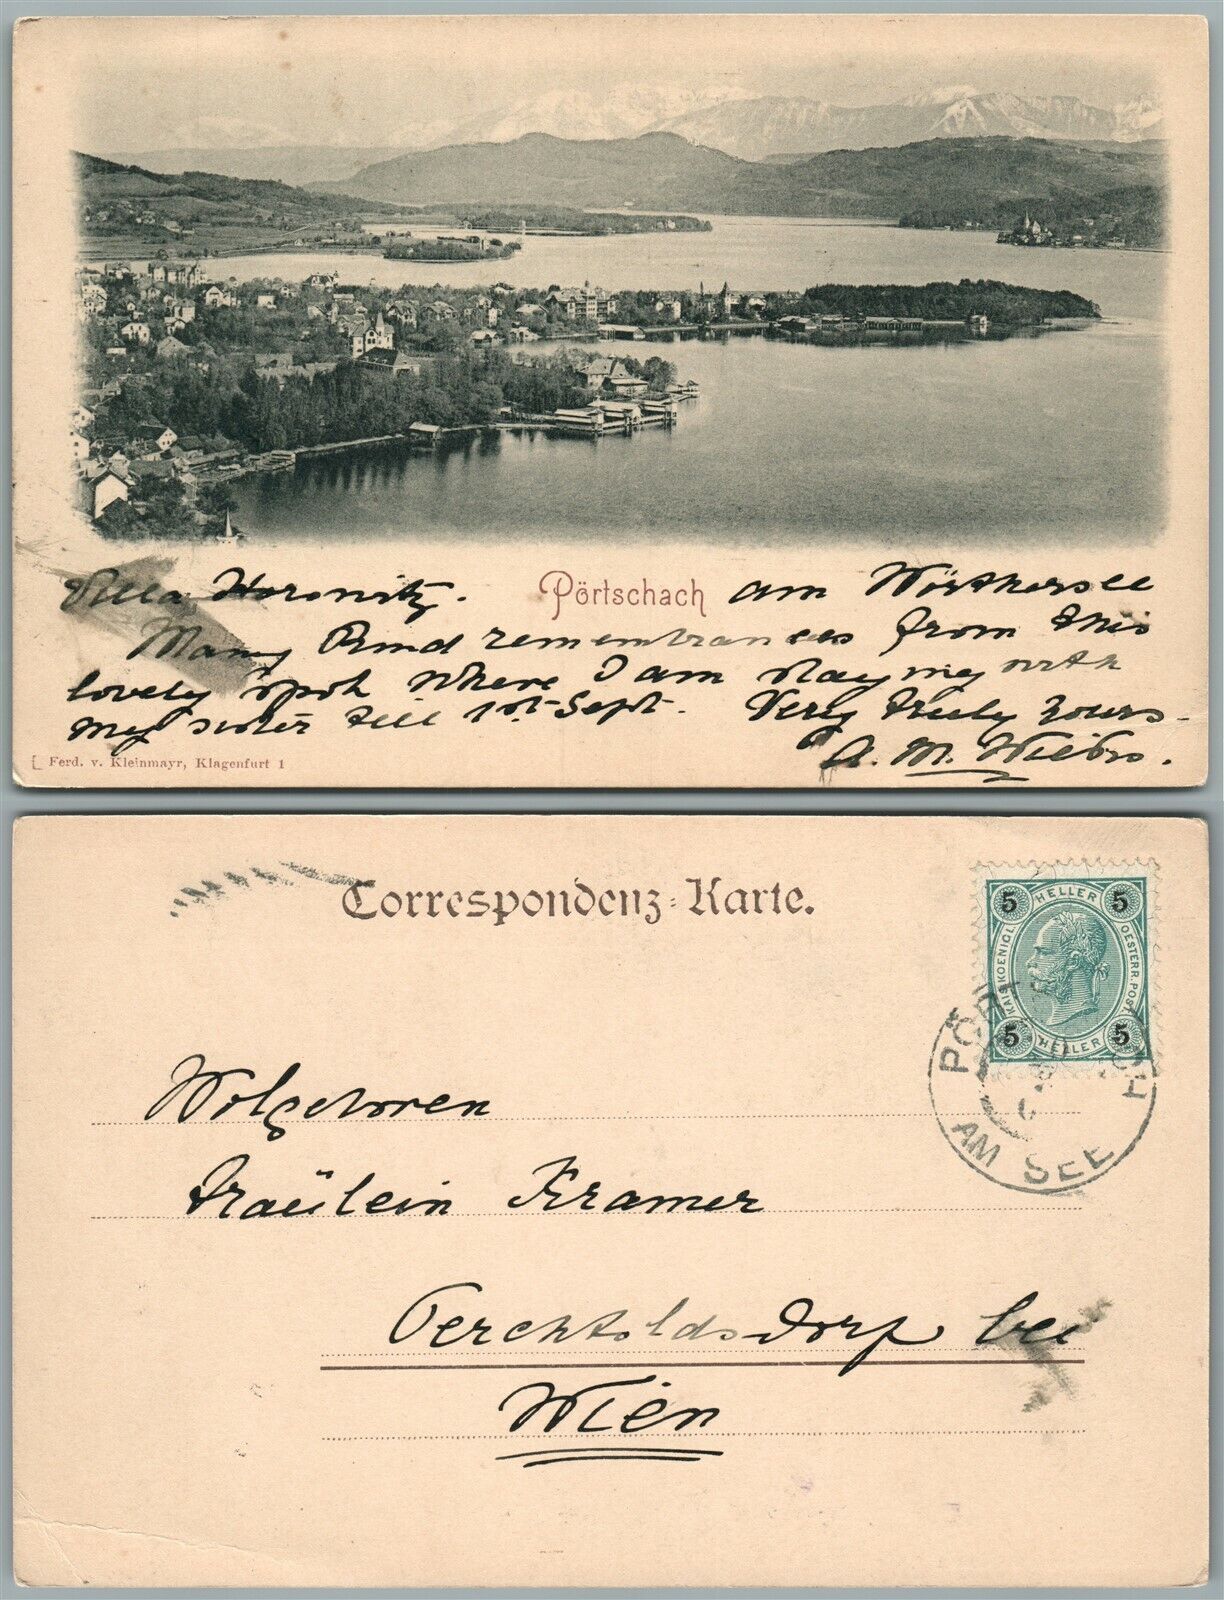 Villa Horowitz. Pörtschach am Wörthersee
Many kind remembrances from this
lovely spot where I am staying with
my sister till 1st Sept. Very truly yours
A. M.
Ferd. v. Kleinmayr, Klagenfurt 1
Correspondenz-Karte.
5 HELLER 5
KAIS. KOENIGL. OESTERR. POST
5 HELLER 5
AM SEE
Wolgeboren
Fräulein Kramer
Perchtoldsdorf bei
Wien